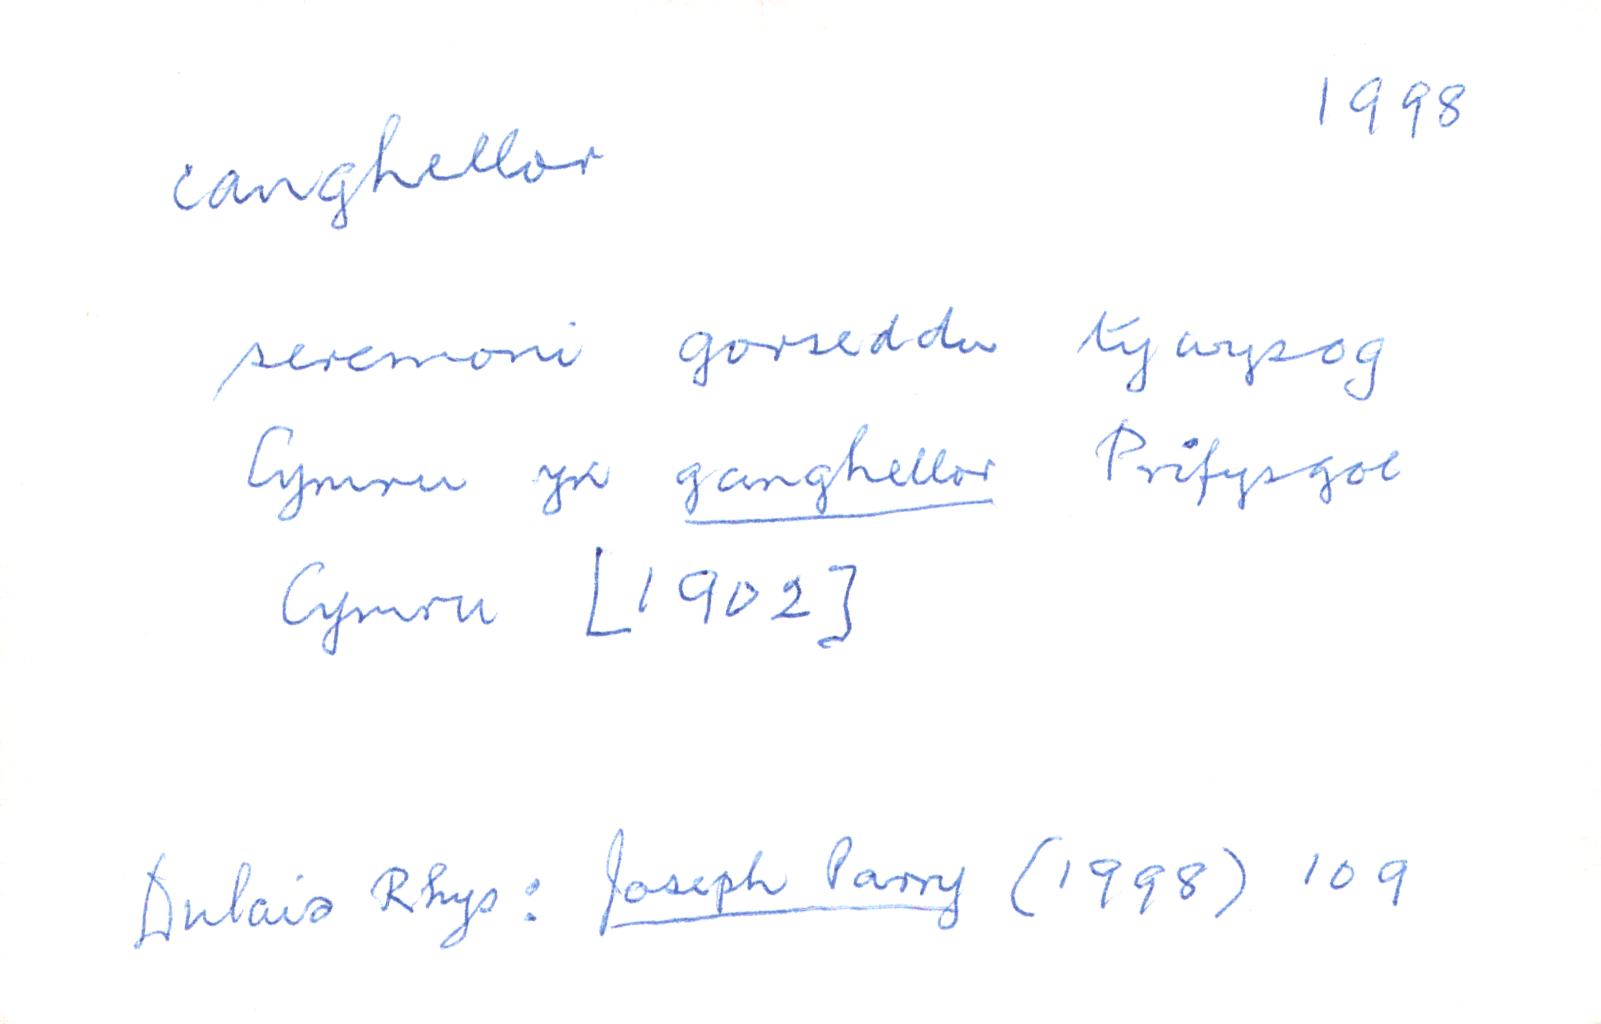 1998
canghellor
seremoni gorseddu tywysog
Cymru yn ganghellor Prifysgol
Cymru [1902]
Dulais Rhys: Joseph Parry (1998) 109